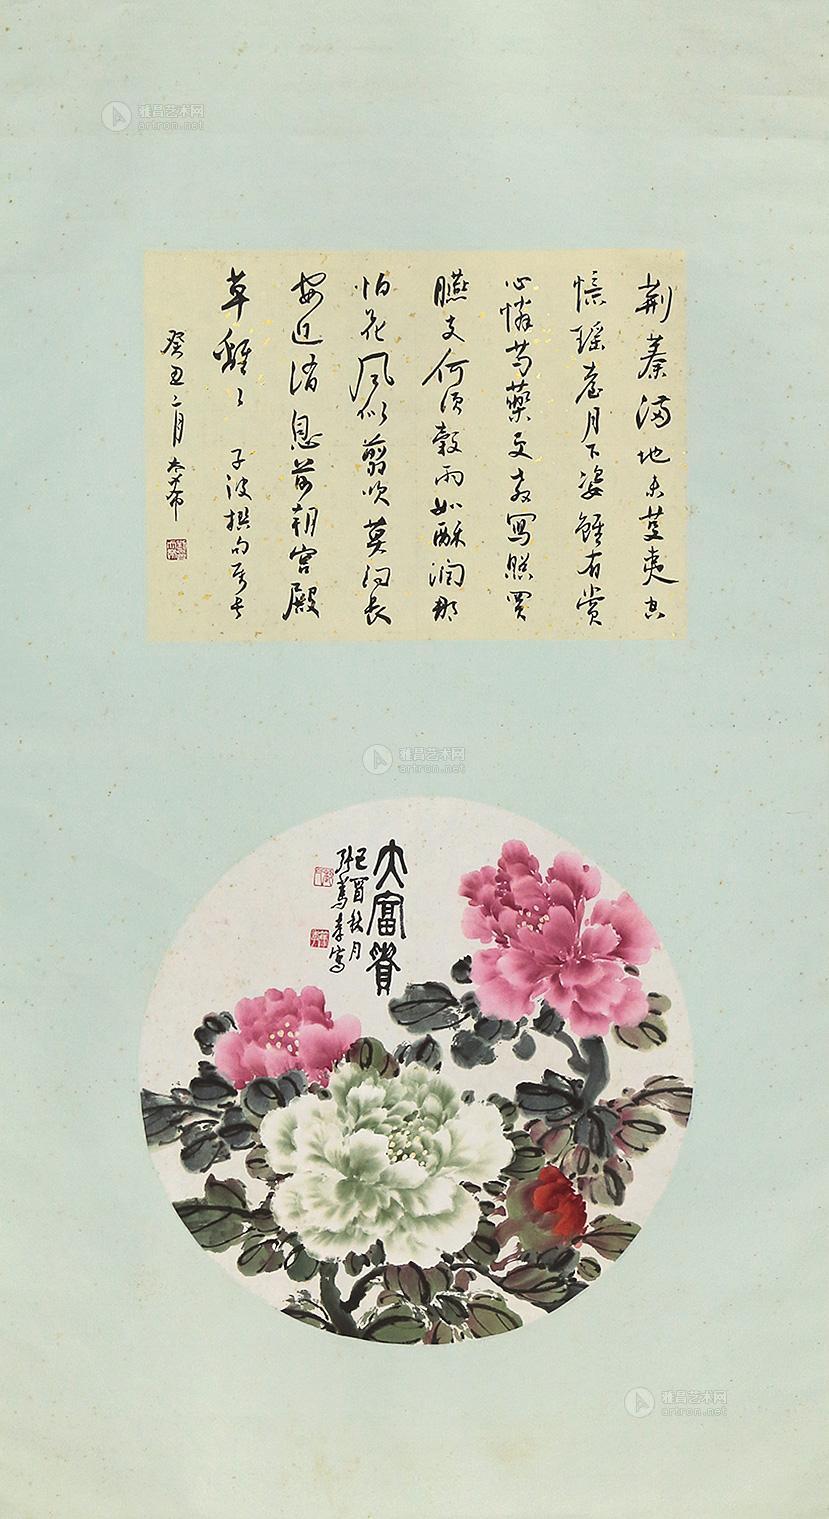 雅昌艺术网
artron.net
荆蓁满地未芟夷空
忆瑶台月下姿虽有赏
心怜芍药更教写照买
胭支何须谷雨如酥润那
怕花风似剪吹莫问长
安近消息前朝宫殿
草离〻 子波撰句
癸丑二月
雅昌艺术网
artron.net
大富贵
己酉秋月
写
雅昌艺术网
artron.net